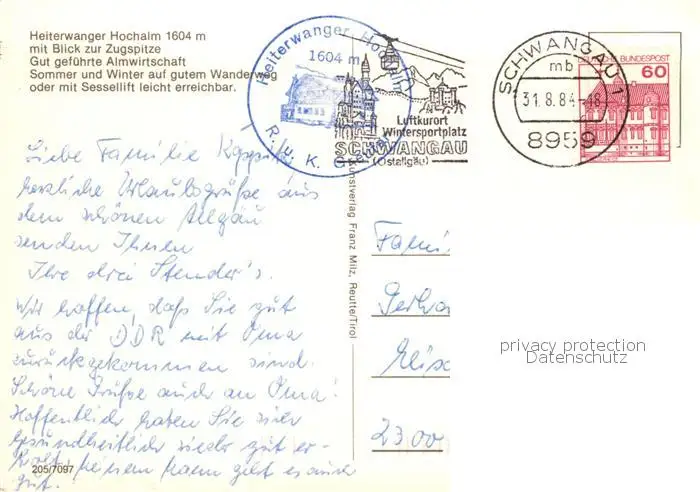 Heiterwanger Hochalm 1604 m
mit Blick zur Zugspitze
Gut geführte Almwirtschaft
Sommer und Winter auf gutem Wanderweg
oder mit Sessellift leicht erreichbar.
Heiterwanger Hochalm
1604 m
R. u. K.
Luftkurort
Wintersportplatz
SCHWANGAU
(Ostallgäu)
SCHWANGAU 1
mb
31.8.84-18
8959
DEUTSCHE BUNDESPOST
60
Liebe Familie
herzliche Urlaubsgrüße aus
dem schönen Allgäu
senden Ihnen
Ihre drei Stender's.
Wir hoffen, daß Sie gut
aus der DDR mit Oma
zurückgekommen sind.
Schöne Grüße auch an Oma!
Hoffentlich haben Sie sich
gesundheitlich wieder gut er-
holt, meinem Mann geht es auch
gut.
205/7097
Kunstverlag Franz Milz, Reutte/Tirol
Fami
Gerha
Elisa
2300
privacy protection
Datenschutz